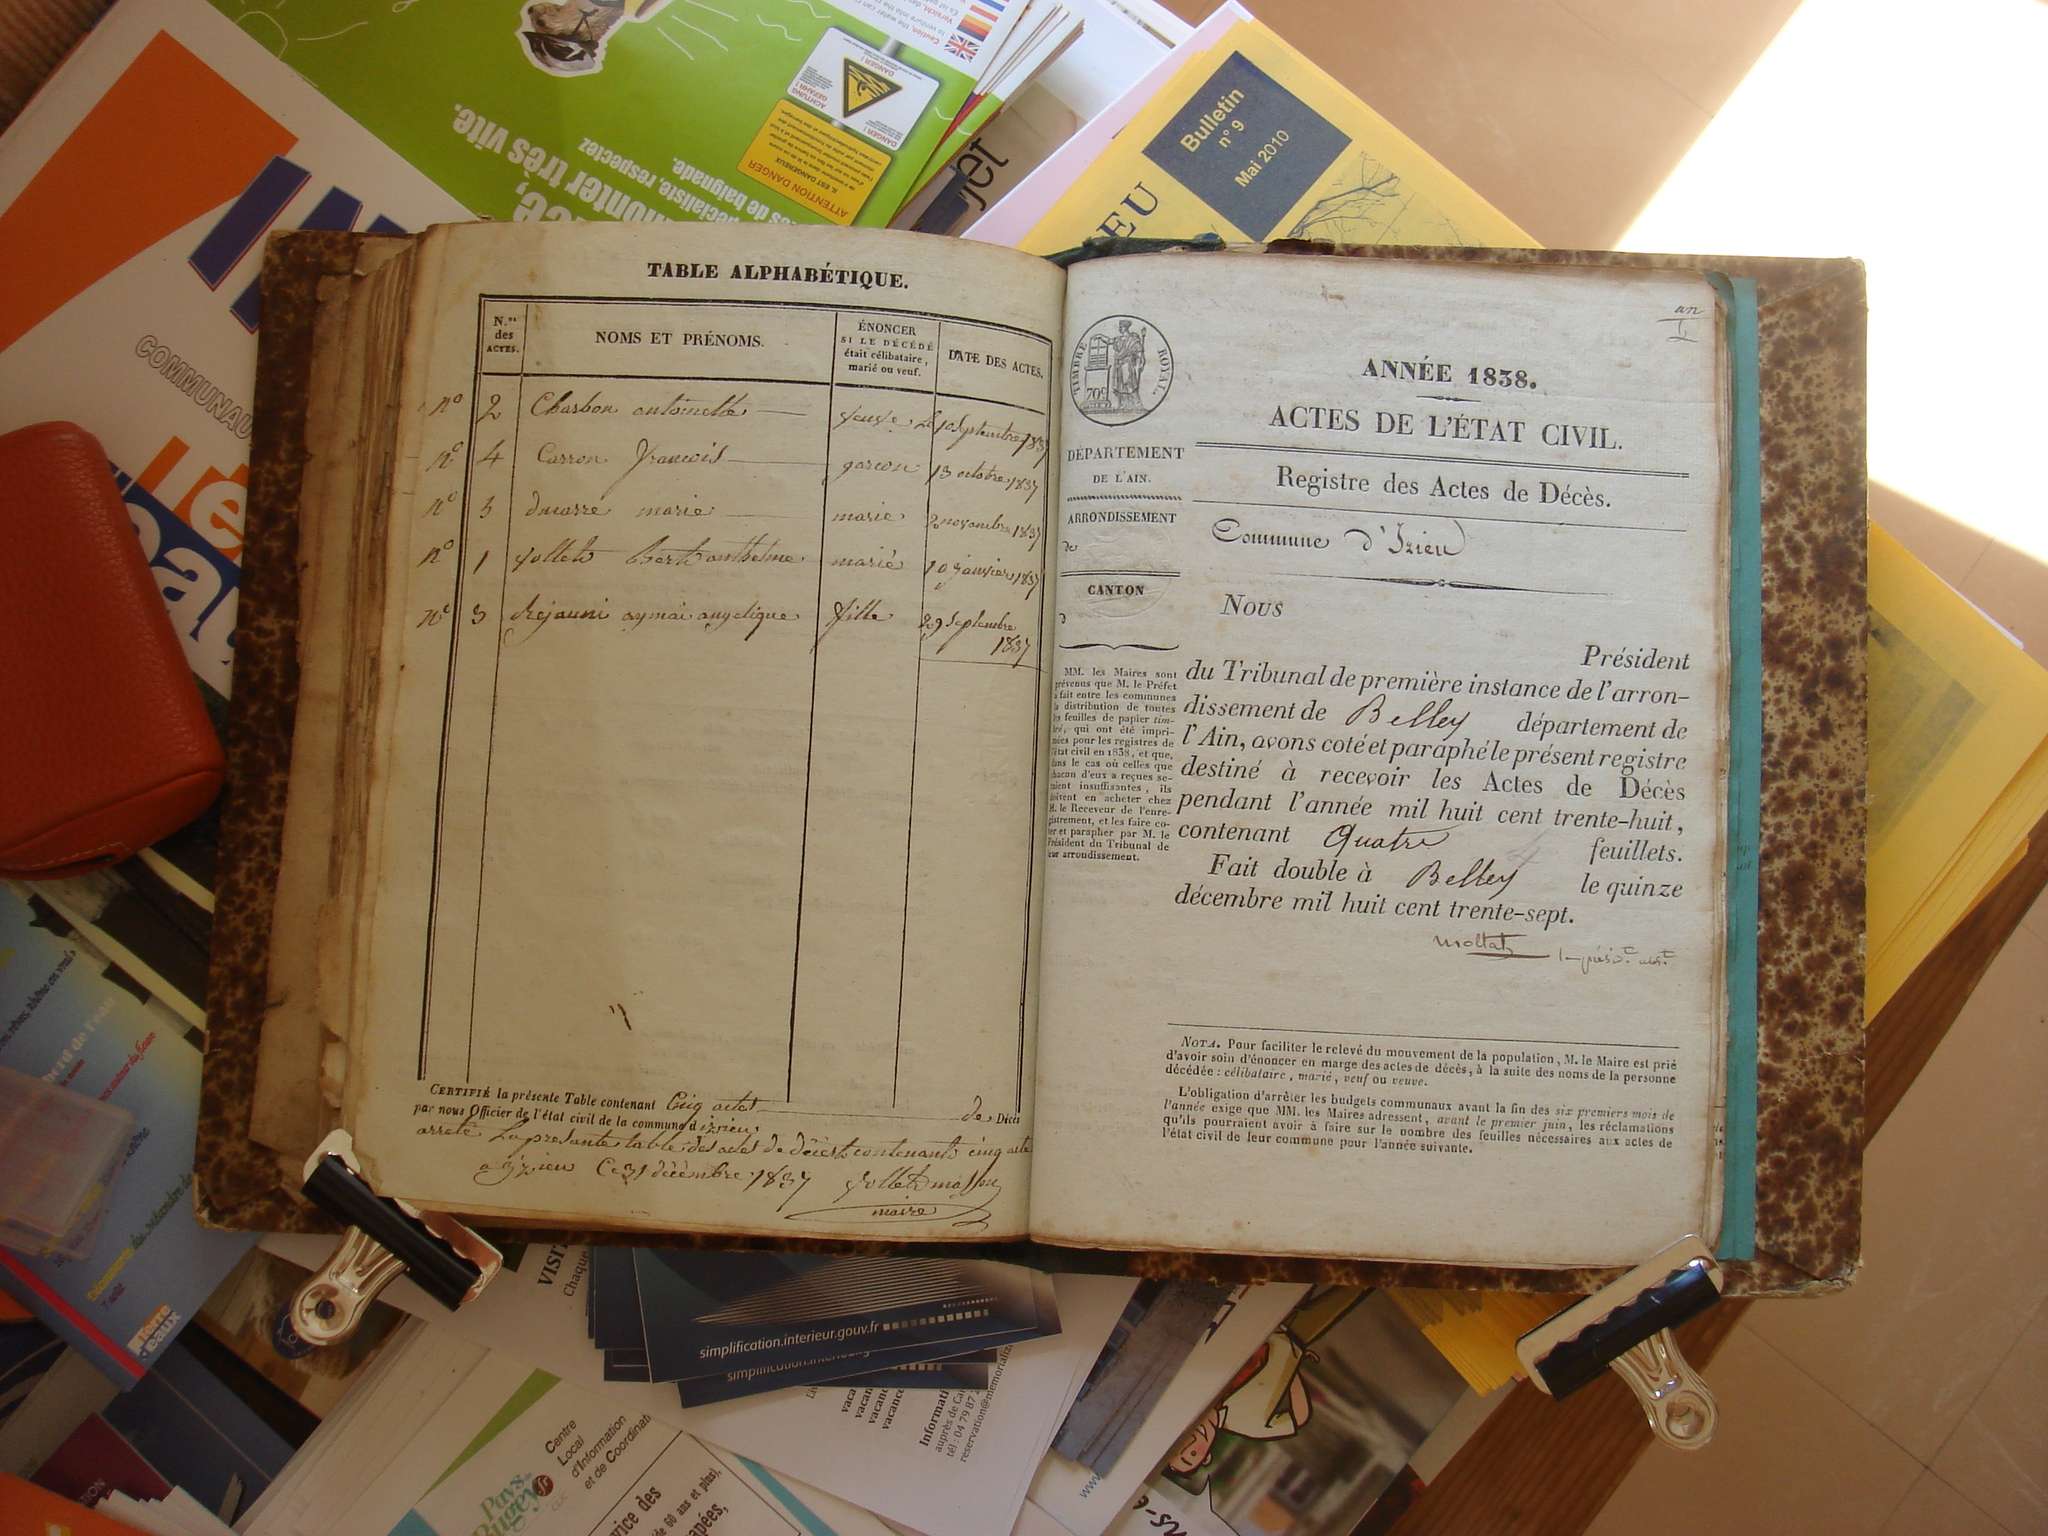 TABLE ALPHABÉTIQUE.
N.os des ACTES.
NOMS ET PRÉNOMS.
ÉNONCER SI LE DÉCÉDÉ était célibataire, marié ou veuf.
DATE DES ACTES.
no 2 Charbon antoinette veuve le 10 septembre 1837
no 4 Carron françois garcon 13 octobre 1837
no 5 marie marie 2 novembre 1837
no 1 anthelme marié 10 janvier 1837
no 3 aymai angelique fille 29 septembre
1837
CERTIFIÉ la présente Table contenant Cinq actes de Décès
par nous Officier de l'état civil de la commune d'izieu,
arrêté La presente table des actes de décès contenant cinq acte
a izieu Ce 31 décembre 1837
maire
an
1
TIMBRE ROYAL.
70c
DÉPARTEMENT
DE L'AIN.
ARRONDISSEMENT
de
CANTON
d
MM. les Maires sont
prévenus que M. le Préfet
a fait entre les communes
la distribution de toutes
les feuilles de papier tim-
bré, qui ont été impri-
mées pour les registres de
l'état civil en 1838, et que,
dans le cas où celles que
chacun d'eux a reçues se-
raient insuffisantes, ils
doivent en acheter chez
M. le Receveur de l'enre-
gistrement, et les faire co-
ter et parapher par M. le
Président du Tribunal de
leur arrondissement.
ANNÉE 1838.
ACTES DE L'ÉTAT CIVIL.
Registre des Actes de Décès.
Commune d'Izieu
NOUS
Président
du Tribunal de première instance de l'arron-
dissement de Belley département de
l'Ain, avons coté et paraphé le présent registre
destiné à recevoir les Actes de Décès
pendant l'année mil huit cent trente-huit,
contenant Quatre feuillets.
Fait double à Belley le quinze
décembre mil huit cent trente-sept.
NOTA. Pour faciliter le relevé du mouvement de la population, M. le Maire est prié
d'avoir soin d'énoncer en marge des actes de décès, à la suite des noms de la personne
décédée : célibataire, marié, veuf ou veuve.
L'obligation d'arrêter les budgets communaux avant la fin des six premiers mois de
l'année exige que MM. les Maires adressent, avant le premier juin, les réclamations
qu'ils pourraient avoir à faire sur le nombre des feuilles nécessaires aux actes de
l'état civil de leur commune pour l'année suivante.
Bulletin
n° 9
Mai 2010
EU
monter très vite.
spécialiste, respectez
de baignade.
ATTENTION DANGER
IL EST DANGEREUX
DANGER !
ACHTUNG
GEFAHR !
COMMUNAU
simplification.interieur.gouv.fr
VISIT
Chaque
vaca
vacan
vacance
Informati
auprès de Ca
tél : 04 79 87 2
reservation@memorializ
Centre
Local
d'Information
et de Coordinati
Pays
Bugey
CLIC
vice des
60 ans et plus),
pées,
www.